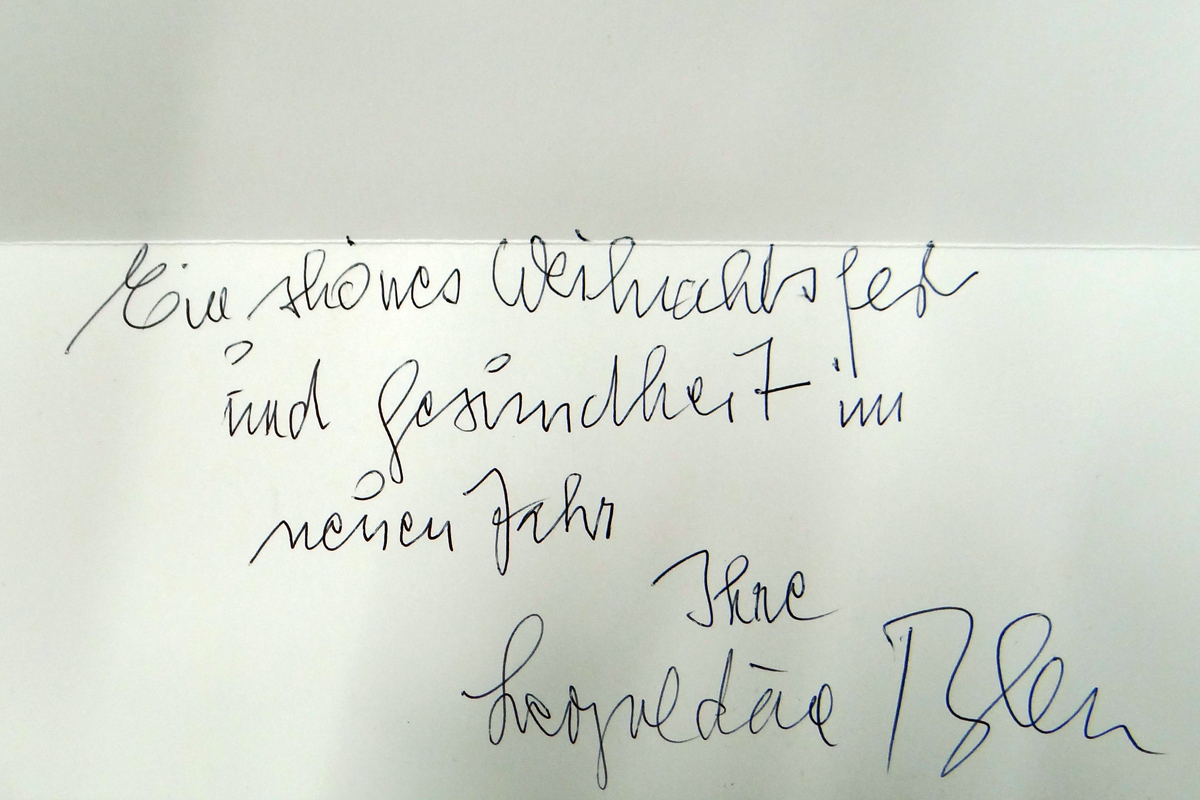 Ein schönes Weihnachtsfest
und Gesundheit im
neuen Jahr
Ihre
Leopoldine